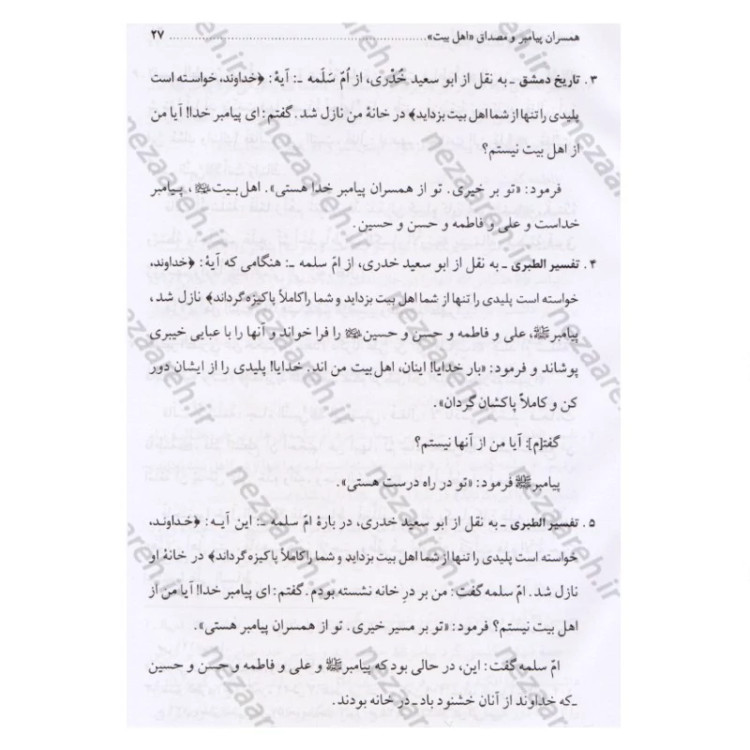 همسران پیامبر و مصداق «اهل بیت» ........................................ ۲۷
۳. تاریخ دمشق ـ به نقل از ابو سعید خُدْری، از اُمّ سَلَمه ـ: آیهٔ: ﴿خداوند، خواسته است
پلیدی را تنها از شما اهل بیت بزداید﴾ در خانهٔ من نازل شد. گفتم: ای پیامبر خدا! آیا من
از اهل بیت نیستم؟
فرمود: «تو بر خیری. تو از همسران پیامبر خدا هستی». اهل بیت، پیامبر
خداست و علی و فاطمه و حسن و حسین.
۴. تفسیر الطبری ـ به نقل از ابو سعید خدری، از امّ سلمه ـ: هنگامی که آیهٔ: ﴿خداوند،
خواسته است پلیدی را تنها از شما اهل بیت بزداید و شما را کاملاً پاکیزه گرداند﴾ نازل شد،
پیامبر ﷺ، علی و فاطمه و حسن و حسین را فرا خواند و آنها را با عبایی خیبری
پوشاند و فرمود: «بار خدایا! اینان، اهل بیت من اند. خدایا! پلیدی را از ایشان دور
کن و کاملاً پاکشان گردان».
گفت[م]: آیا من از آنها نیستم؟
پیامبر ﷺ فرمود: «تو در راه درست هستی».
۵. تفسیر الطبری ـ به نقل از ابو سعید خدری، در بارهٔ امّ سلمه ـ: این آیه: ﴿خداوند،
خواسته است پلیدی را تنها از شما اهل بیت بزداید و شما را کاملاً پاکیزه گرداند﴾ در خانهٔ او
نازل شد. امّ سلمه گفت: من بر درِ خانه نشسته بودم. گفتم: ای پیامبر خدا! آیا من از
اهل بیت نیستم؟ فرمود: «تو بر مسیر خیری. تو از همسران پیامبر هستی».
امّ سلمه گفت: این، در حالی بود که پیامبر ﷺ و علی و فاطمه و حسن و حسین
ـ که خداوند از آنان خشنود باد ـ در خانه بودند.
nezaareh.ir